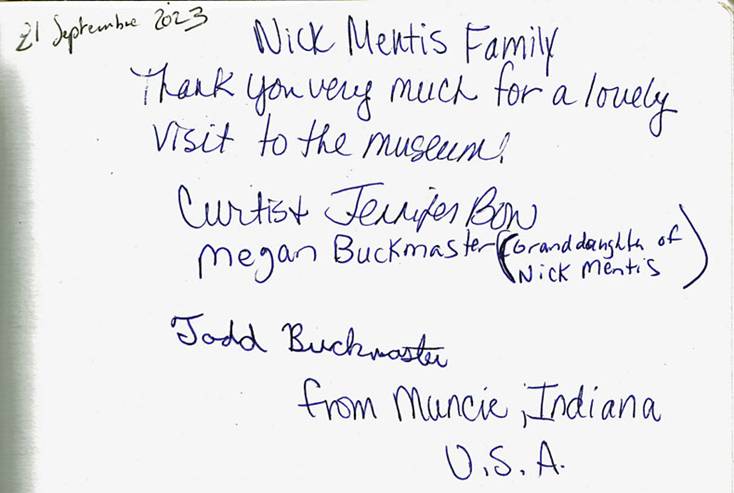 21 Septembre 2023
Nick Mentis Family
Thank you very much for a lovely
visit to the museum!
Curtis & Jennifer Bow
Megan Buckmaster (Granddaughter of
Nick Mentis)
Todd Buckmaster
from Muncie, Indiana
U.S.A.